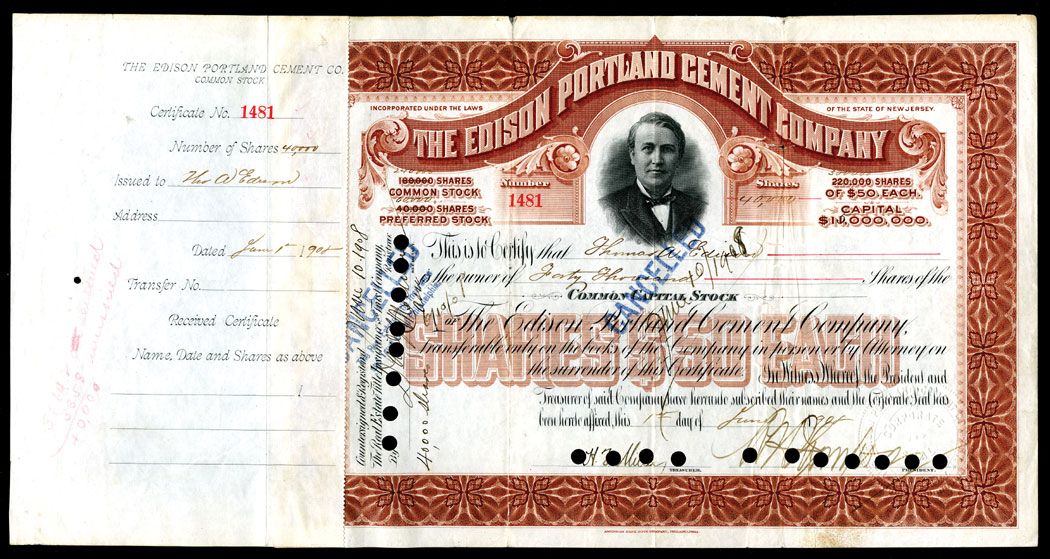 THE EDISON PORTLAND CEMENT CO.
COMMON STOCK
Certificate No. 1481
Number of Shares 40,000
Issued to Thos A Edison
Address
Dated June 1st 1908
Transfer No.
Received Certificate
Name, Date and Shares as above
40,000
THE EDISON PORTLAND CEMENT COMPANY
INCORPORATED UNDER THE LAWS
OF THE STATE OF NEW JERSEY.
180,000 SHARES
COMMON STOCK
40,000 SHARES
PREFERRED STOCK
Number
1481
Shares
40,000
220,000 SHARES
OF $50. EACH.
CAPITAL
$11,000,000.
This is to Certify that Thomas A. Edison
is the owner of Forty Thousand Shares of the
COMMON CAPITAL STOCK
For The Edison Portland Cement Company,
Transferable only on the books of the Company in person or by Attorney on
the surrender of this Certificate. In Witness Whereof, the President and
Treasurer of said Company have hereunto subscribed their names and the Corporate Seal has
been hereto affixed, this 1st day of June 1908
SHARES $50 EACH
TREASURER.
PRESIDENT.
Countersigned & Registered
By
CANCELED
CANCELED
June 10/1908
June 10 1908
40,000 shares
AMERICAN BANK NOTE COMPANY, PHILADELPHIA.